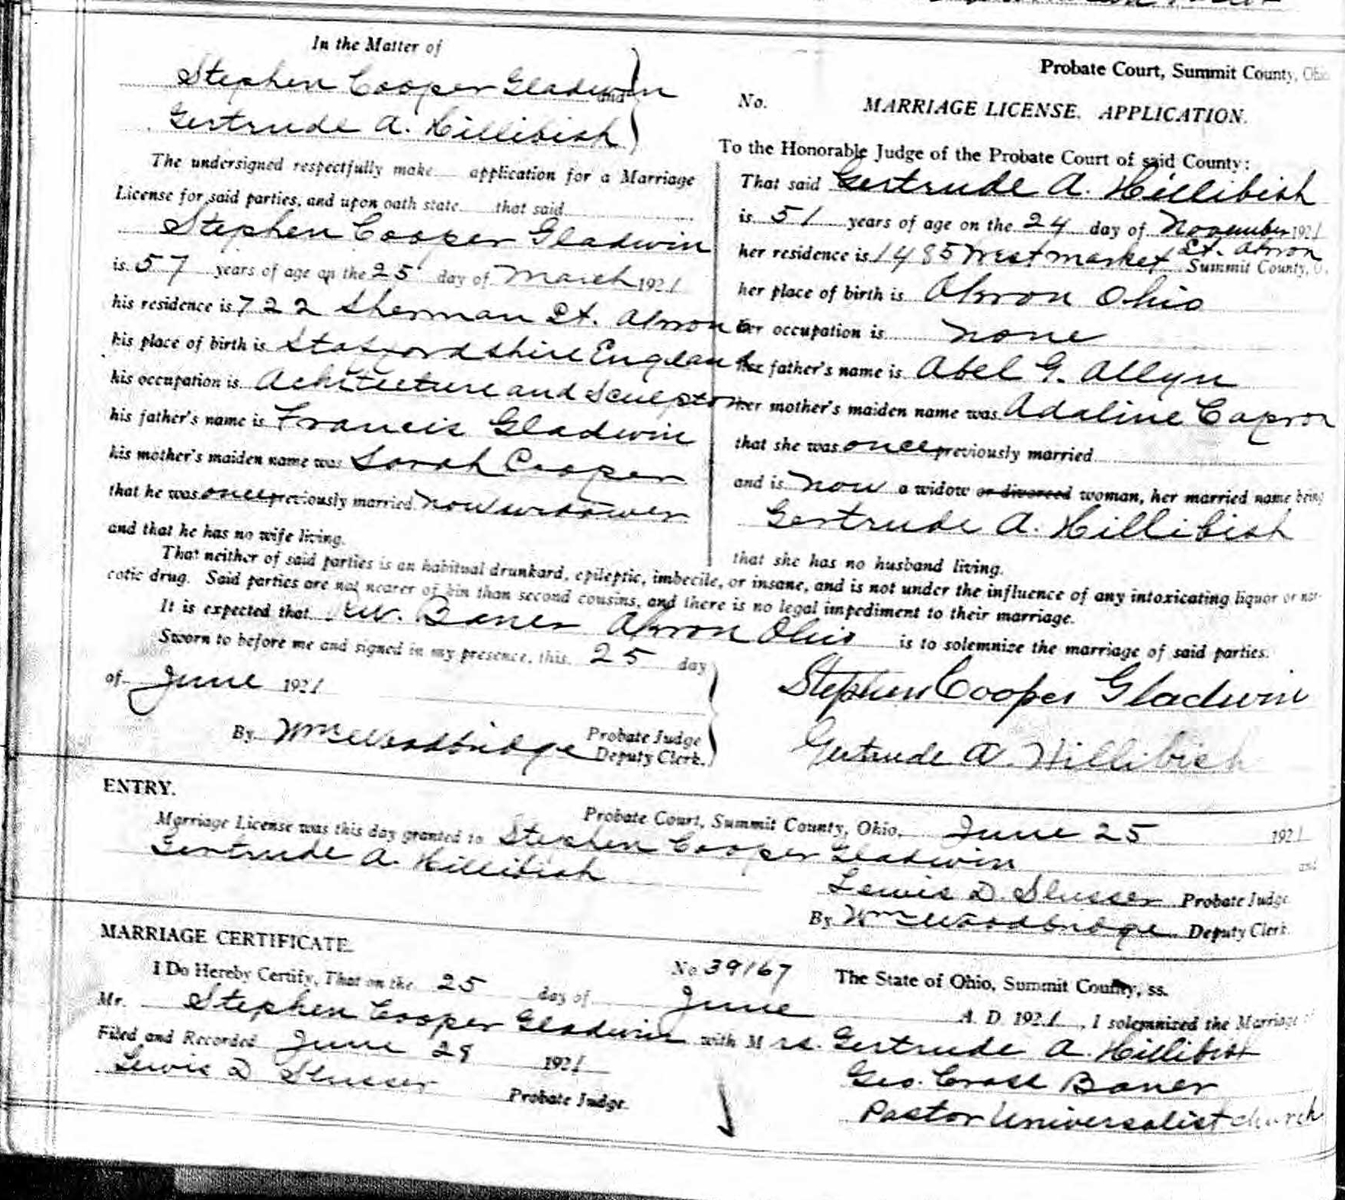 In the Matter of
Stephen Cooper Gladwin
and
Gertrude A. Hillibish
The undersigned respectfully make application for a Marriage
License for said parties, and upon oath state that said
Stephen Cooper Gladwin
is 57 years of age on the 25 day of March 1921
his residence is 722 Sherman St. Akron O
his place of birth is Staffordshire England
his occupation is Achitecture and Sculptor
his father's name is Francis Gladwin
his mother's maiden name was Sarah Cooper
that he was once previously married now widower
and that he has no wife living.
Probate Court, Summit County, Ohio
No. MARRIAGE LICENSE. APPLICATION.
To the Honorable Judge of the Probate Court of said County:
That said Gertrude A. Hillibish
is 51 years of age on the 24 day of November 1921
her residence is 1485 West Market St. Akron Summit County, O.
her place of birth is Akron Ohio
her occupation is none
her father's name is Abel G. Allyn
her mother's maiden name was Adaline Capron
that she was once previously married
and is now a widow or divorced woman, her married name being
Gertrude A. Hillibish
that she has no husband living.
That neither of said parties is an habitual drunkard, epileptic, imbecile, or insane, and is not under the influence of any intoxicating liquor or nar-
cotic drug. Said parties are not nearer of kin than second cousins, and there is no legal impediment to their marriage.
It is expected that Rev. Baner Akron Ohio is to solemnize the marriage of said parties.
Sworn to before me and signed in my presence, this 25 day
of June 1921
Stephen Cooper Gladwin
Gertrude A. Hillibish
Probate Judge
By Deputy Clerk.
ENTRY.
Probate Court, Summit County, Ohio, June 25 1921
Marriage License was this day granted to Stephen Cooper Gladwin and
Gertrude A. Hillibish
Lewis D. Slusser Probate Judge
By Deputy Clerk.
MARRIAGE CERTIFICATE.
No 39167 The State of Ohio, Summit County, ss.
I Do Hereby Certify, That on the 25 day of June A. D. 1921, I solemnized the Marriage of
Mr. Stephen Cooper Gladwin with Mrs. Gertrude A. Hillibish
Filed and Recorded June 28 1921
Geo. Cross Baner
Lewis D Slusser Probate Judge.
Pastor Universalist church